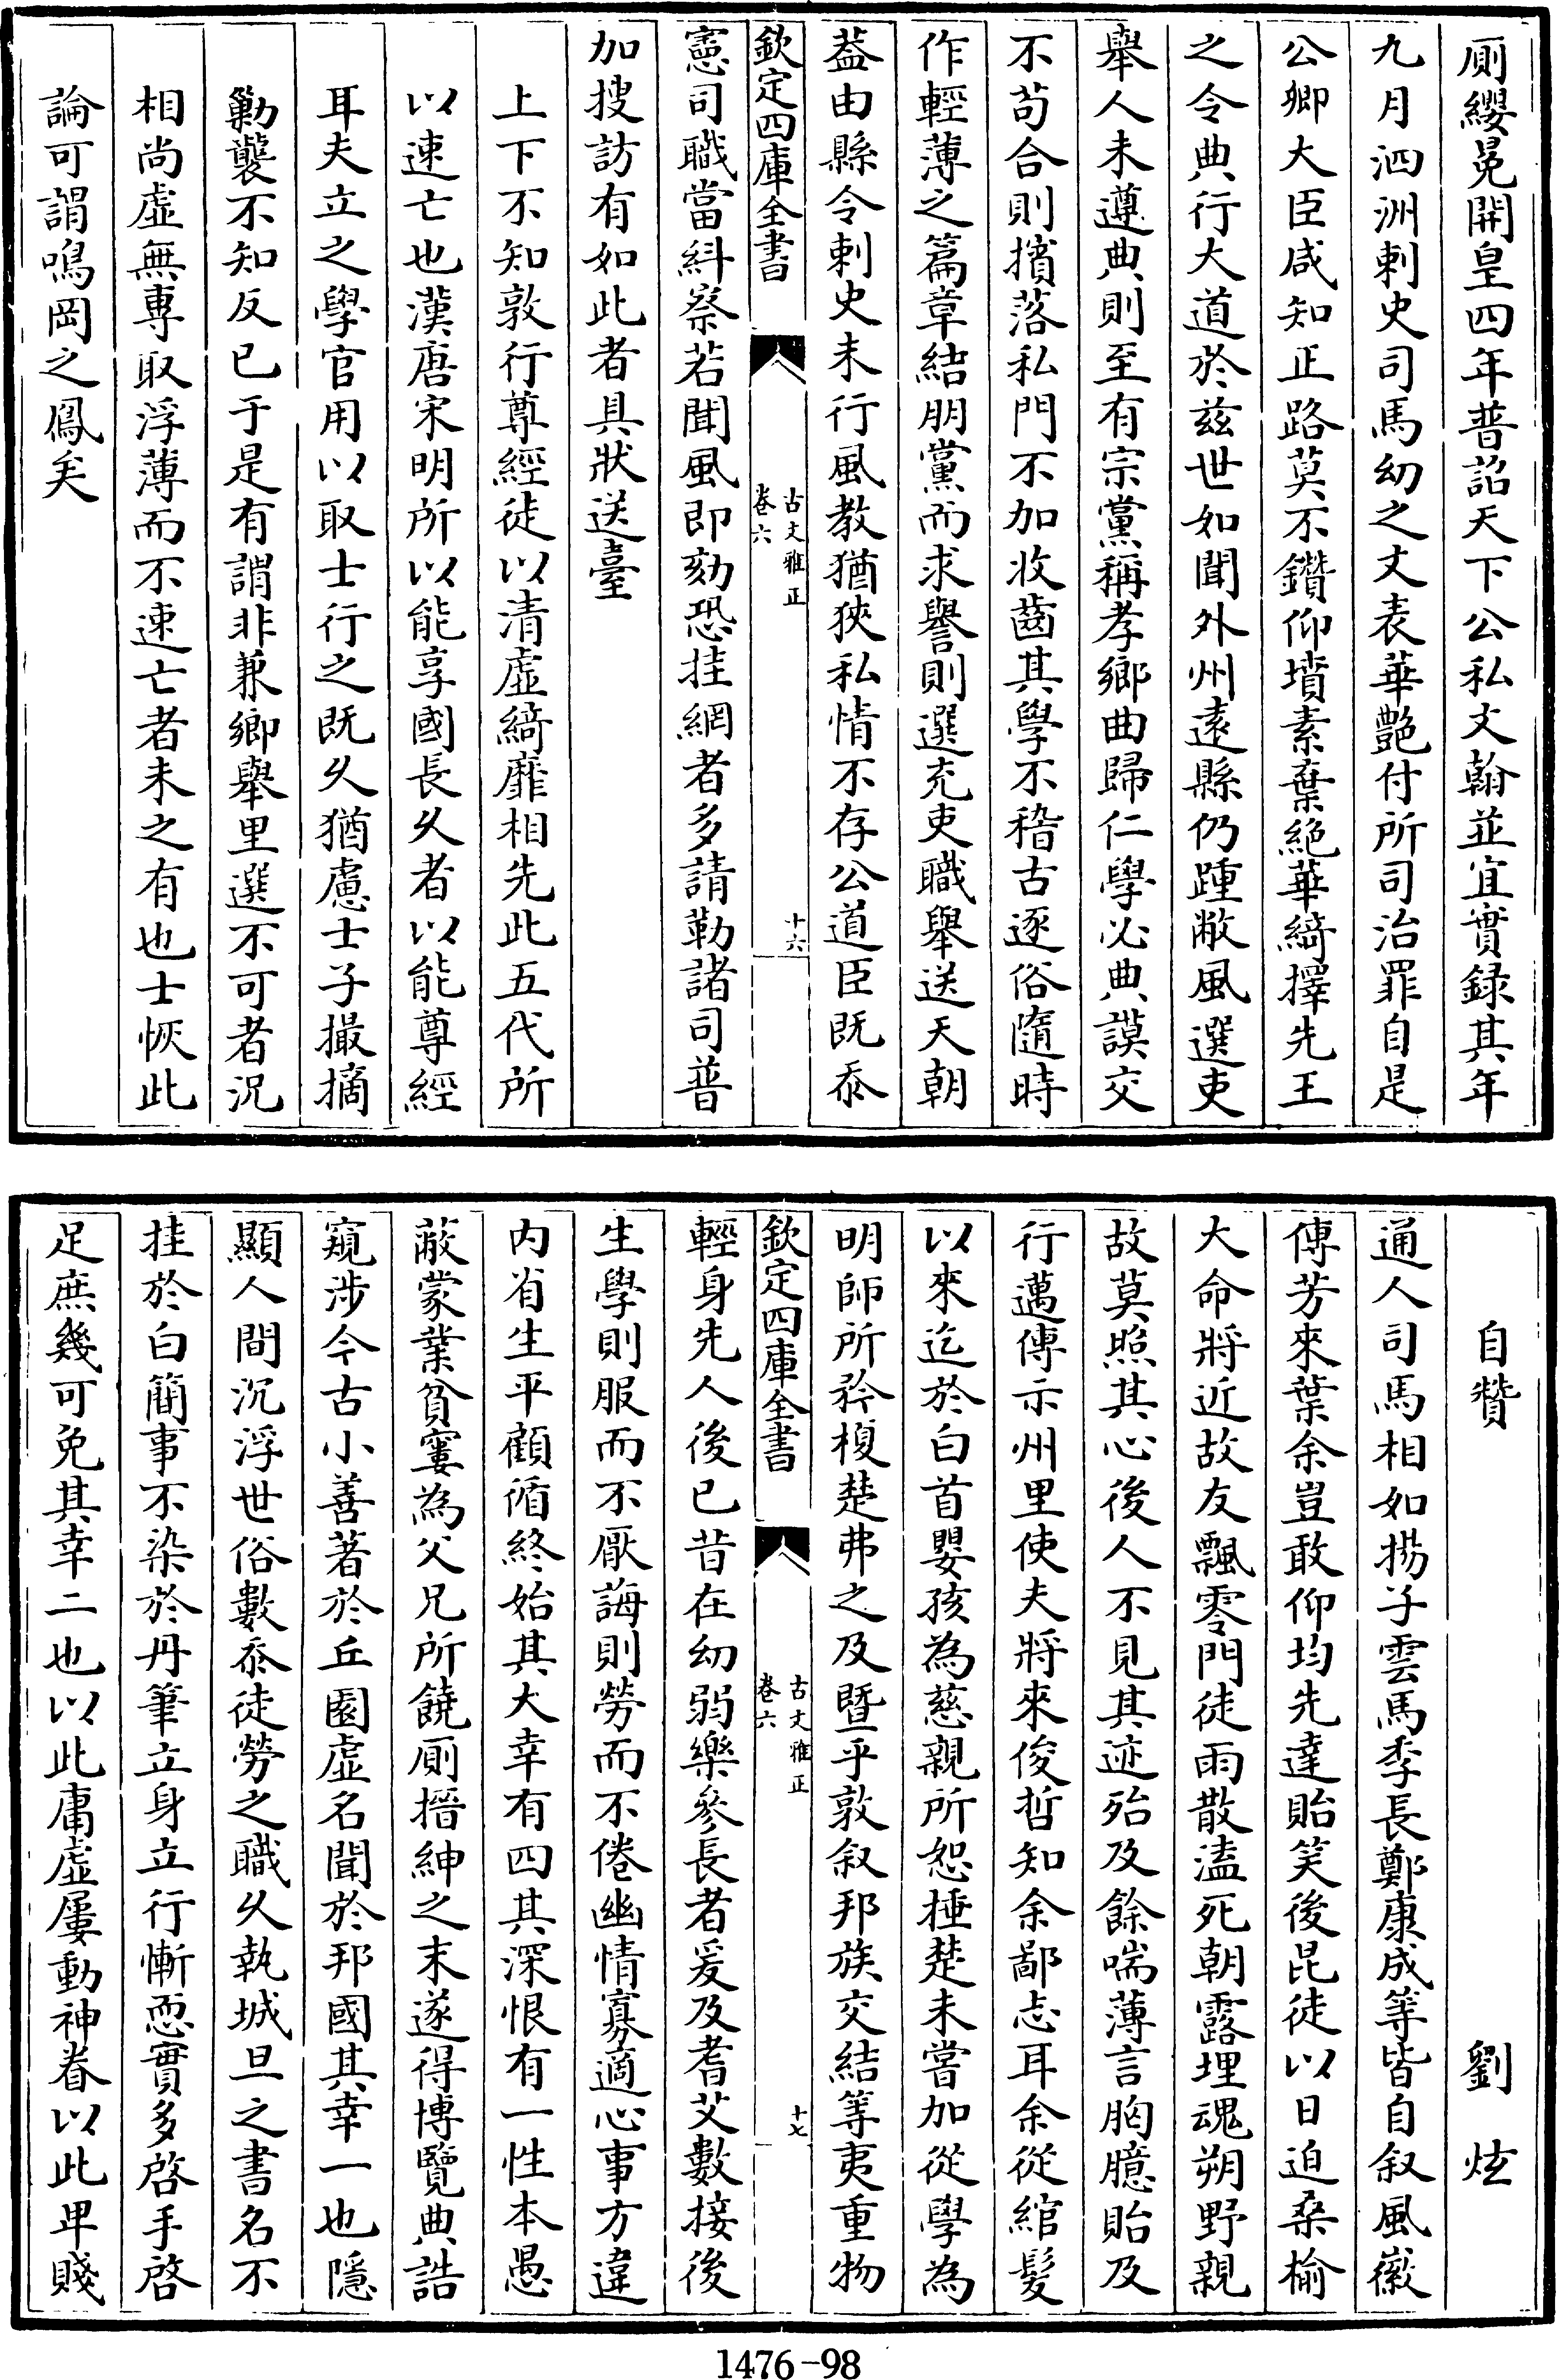 厠纓冕開皇四年普詔天下公私文翰並宜實録其年
九月泗洲刺史司馬幼之文表華艶付所司治罪自是
公卿大臣咸知正路莫不鑽仰墳素棄絶華綺擇先王
之令典行大道於兹世如聞外州逺縣仍踵敝風選吏
舉人未遵典則至有宗黨稱孝鄉曲歸仁學必典謨交
不茍合則擯落私門不加收齒其學不稽古逐俗隨時
作輕薄之篇章結朋黨而求譽則選充吏職舉送天朝
葢由縣令刺史未行風教猶狹私情不存公道臣既忝
欽定四庫全書
古文雅正
卷六
十六
憲司職當糾察若聞風即劾恐挂網者多請勒諸司普
加搜訪有如此者具狀送臺
上下不知敦行尊經徒以清虚綺靡相先此五代所
以速亡也漢唐宋明所以能享國長久者以能尊經
耳夫立之學官用以取士行之既久猶慮士子撮摘
勦襲不知反已于是有謂非兼鄉舉里選不可者况
相尚虚無專取浮薄而不速亡者未之有也士恢此
論可謂鳴岡之鳳矣
自贊　劉炫
通人司馬相如揚子雲馬季長鄭康成等皆自叙風徽
傳芳來葉余豈敢仰均先達貽笑後昆徒以日迫桑榆
大命將近故友飄零門徒雨散溘死朝露埋魂朔野親
故莫照其心後人不見其迹殆及餘喘薄言胸臆貽及
行邁傳示州里使夫將來俊哲知余鄙志耳余從綰髮
以來迄於白首嬰孩為慈親所恕捶楚未嘗加從學為
明師所矜榎楚弗之及暨乎敦叙邦族交結等夷重物
欽定四庫全書
古文雅正
卷六
十七
輕身先人後已昔在幼弱樂參長者爰及耆艾數接後
生學則服而不厭誨則勞而不倦幽情寡適心事方違
内省生平顧循終始其大幸有四其深恨有一性本愚
蔽蒙業貧窶為父兄所饒厠搢紳之末遂得博覽典誥
窺涉今古小善著於丘園虚名聞於邦國其幸一也隱
顯人間沉浮世俗數忝徒勞之職久執城旦之書名不
挂於白簡事不染於丹筆立身立行慚恧實多啓手啓
足庶幾可免其幸二也以此庸虚屢動神眷以此卑賤
1476-98